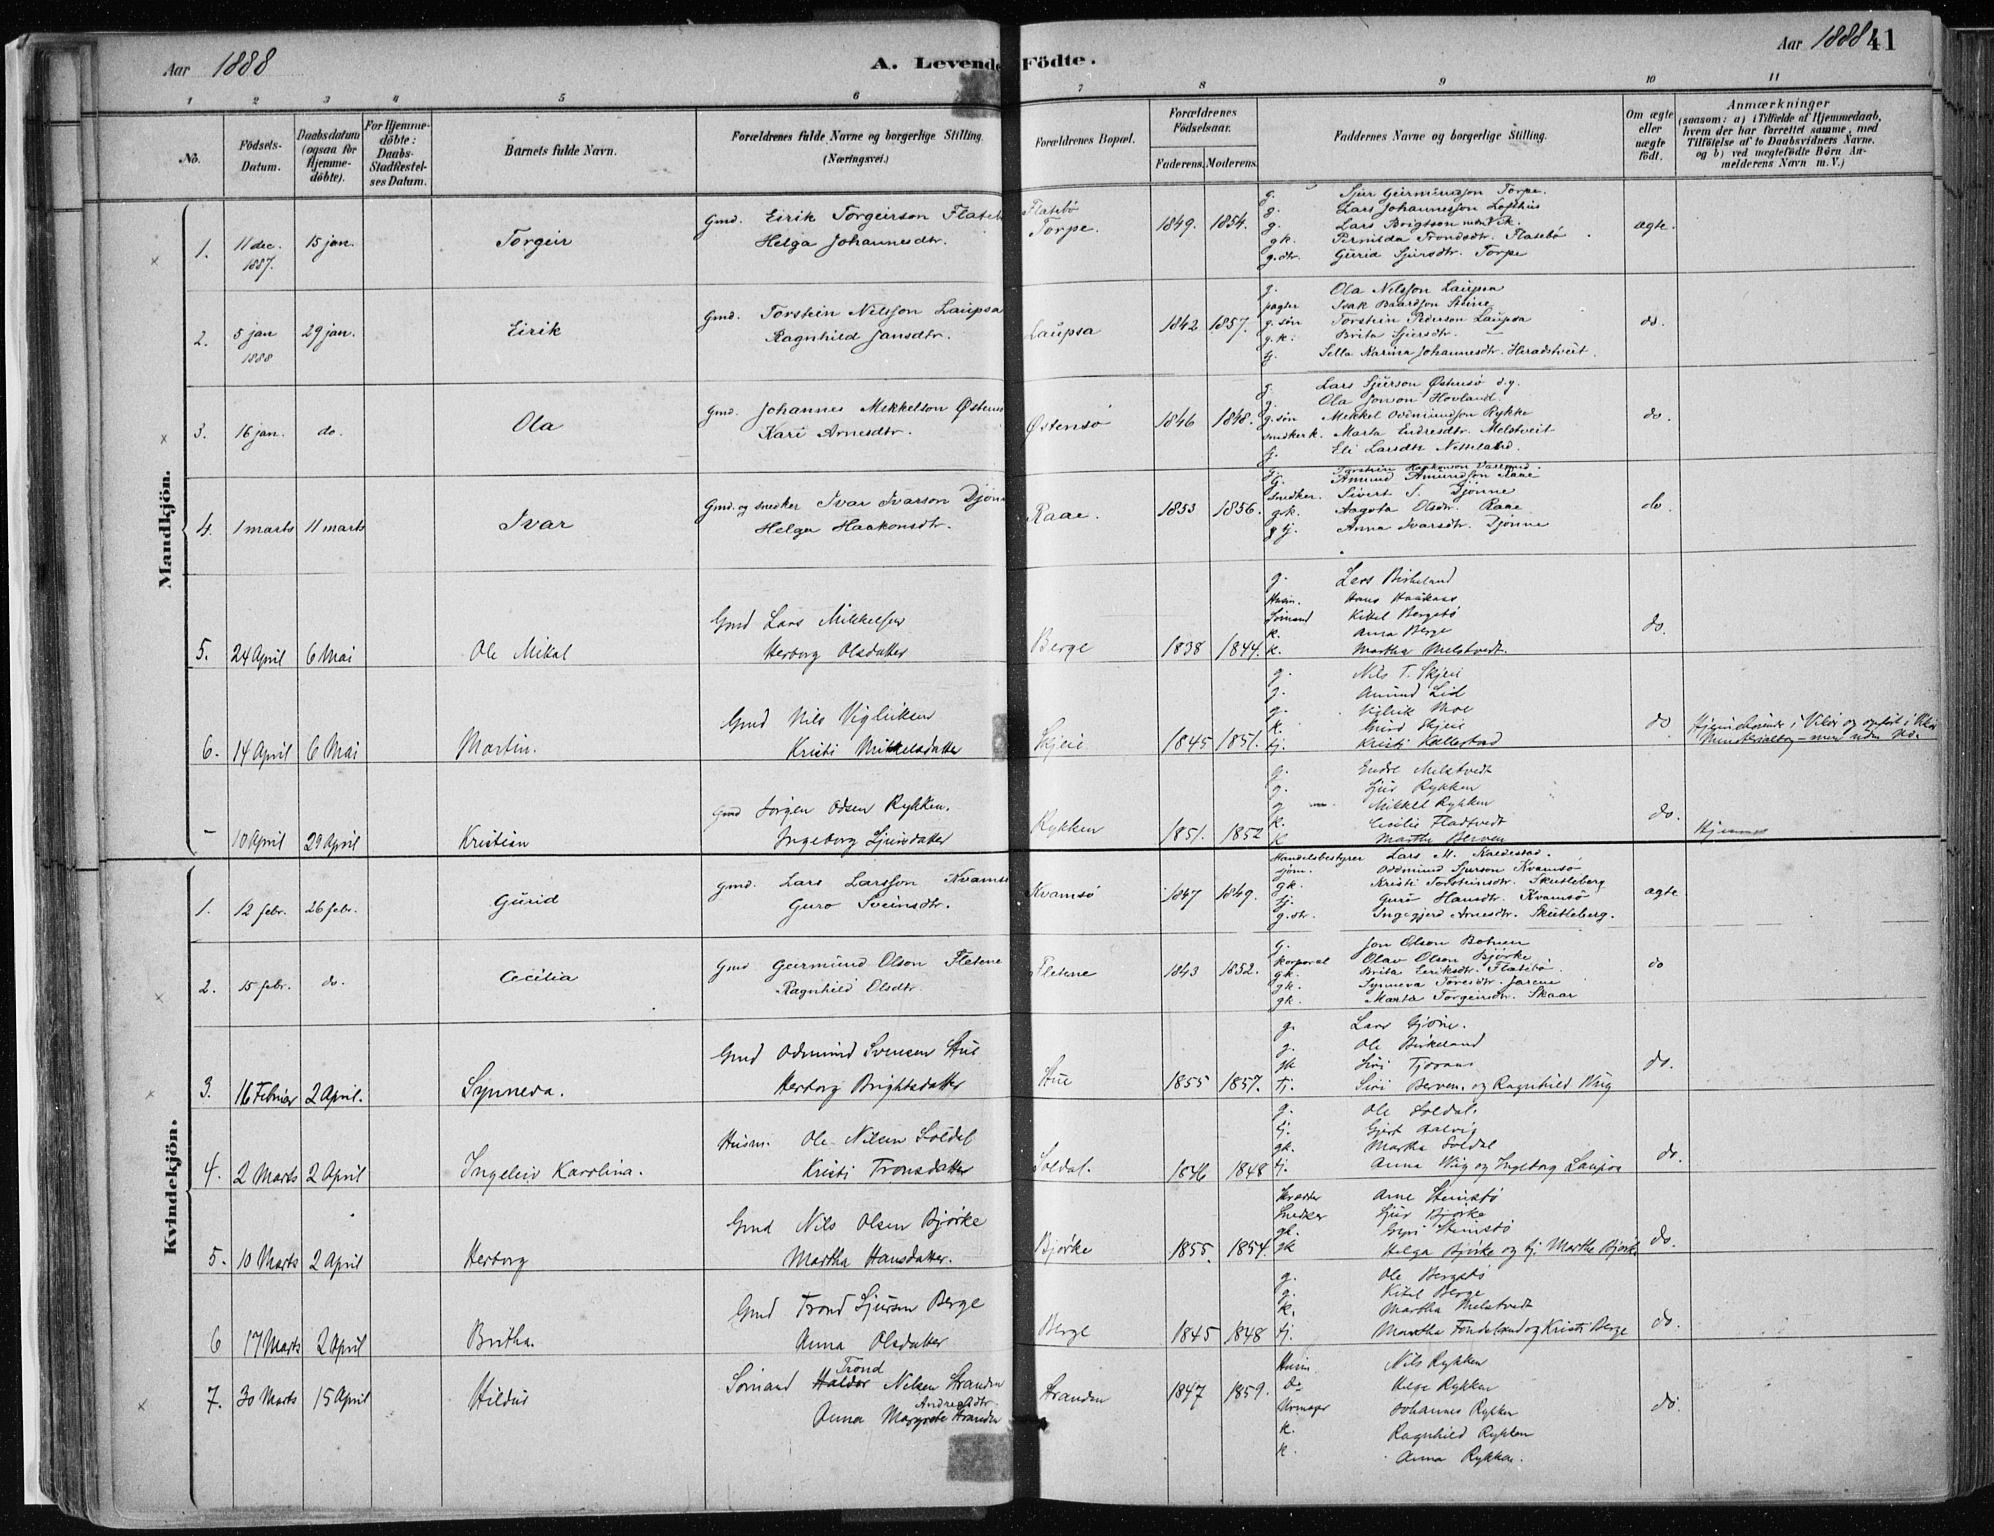 Aar 1888
A. Levende Födte.
Aar 1888
41
1 2 3 4 5 6 7 8 9 10 11
No.
Födsels-Datum.
Daabsdatum (ogsaa for Hjemme-döbte).
For Hjemme-döbte: Daabs-Stadfæstel-ses Datum.
Barnets fulde Navn.
Forældrenes fulde Navne og borgerlige Stilling. (Næringsvei.)
Forældrenes Bopæl.
Forældrenes Födselsaar.
Faderens. Moderens.
Faddernes Navne og borgerlige Stilling.
Om ægte eller uægte født.
Anmærkninger
(saasom: a) i Tilfælde af Hjemmedaab, hvem der har forrettet samme, med Tilföielse af to Daabsvidners Navne, og b) ved uægtefödte Börn Anmelderens Navn m. V.)
Mandkjön.
1. 11 dec. 1887. 15 jan. Torgeir
Gmd. Eirik Torgeirson Flatebö
Helga Johannesdtr.
Flatebö Torpe. 1849. 1854.
g. Sjur Geirmundson Torpe.
g. Lars Johannesson Lofthus
g. Lars Brigtson
gk. Pernilda Trondsdtr. Flatebö
g.dtr. Gurid Sjursdtr. Torpe
ægte.
2. 5 jan 1888 29 jan. Eirik
Gmd. Torstein Nilsson Laupsa
Ragnhild Jansdtr.
Laupsa 1842 1857.
g. Ola Nilsson Laupsa
pagter Isak Baardson Steine
g. søn Torstein Pederson Laupsa
g.k. Brita Sjursdtr. —
tj. Sella Karina Johannesdtr. Heradstveit.
do.
3. 16 jan. do. Ola
Gmd. Johannes Mikkelson Østensø
Kari Arnesdtr.
Østensø 1846 1848.
g. Lars Sjurson Østensö d.y.
g. Ola Jonson Hovland
g.søn Mikkel Oddmundson Rykke
snedker k. Marta Endresdtr. Melstveit
tj. Eli Larsdtr. Netteland.
do.
4. 1 marts 11 marts Ivar
Gmd. og snedker Ivar Ivarson Djønne
Helga Haakonsdtr.
Raae. 1853 1856.
g. Torstein Haakonson
g. Amund Amundson Raae
snedker. Sivert S. Djönne
g.k. Aagota Olsdtr. Raae
g tj. Anna Ivarsdtr. Djönne
do.
5. 24 April 6 Mai Ole Mikal
Gmd Lars Mikkelsen
Herborg Olsdatter
Berge 1838 1844.
g. Lars Birkeland
Husm. Hans Haakaas
Sømand Kitil Bergstø
k. Anna Berge
k. Martha Melstvedt.
do.
6. 14 April 6 Mai Martin.
Gmd Nils Vigleiksen
Kristi Mikkelsdatter
Skjeie 1845 1851.
g. Nils T. Skjeie
g. Amund Lid
g. Viglik Moe
k. Gurid Skjeie
tj. Kristi Kallestad
do
– 10 April 29 April Kristian
Gmd Jørgen Odsen Rykken.
Ingeborg Sjursdatter
Rykken 1851. 1852
g. Endre Melstvedt
g. Sjur Rykken
g Mikkel Rykken
k. Cecilie Fladtvedt
k Martha Berven
do.
Kvindekjön.
1. 12 febr. 26 febr. Gurid
Gmd. Lars Larsson Kvamsö
Guro Sveinsdtr.
Kvamsö 1847 1849.
Handelsbestyrer Lars M. Kaldestad.
sjöm. Oddmund Sjurson Kvamsö
gk. Kristi Torsteinsdtr. Skutleberg
tj. Guro Hansdtr. Kvamsö
g.dtr. Ingegjerd Arnesdtr. Skutleberg.
ægte
2. 15 febr. do. Cecilia
Gmd Geirmund Olson Fletene
Ragnhild Olsdtr.
Fletene 1843 1852.
g. Jon Olson Botnen
korporal Olav Olson Bjørke
gk. Brita Eeriksdtr. Flatebö.
gk. Synneva Toresdtr. Jarene
gk. Marta Torgeirsdtr. Skaar
do
3. 16 Februar 2 April. Synneva.
Gmd Odmund Svensen Hus
Herborg Brightsdatter
1855 1857.
g. Lars Gjöne.
g. Ole Birkeland
gk Siri Tjoraas
tj. Siri Berven. og Ragnhild Wiig
do.
4. 2 Marts 2 April Ingeleiv Karolina.
Husm. Ole Nilsen Soldal
Kristi Tronsdatter
Soldal. 1846 1848
g. Ole Soldal.
tj. Gjert Aalvig
gk. Martha Soldal
tj. Anna Wiig og Ingeborg Laupsa
do.
5. 10 Marts 2 April Herborg
Gmd Nils Olsen Bjørke
Martha Hansdatter.
Bjørke 1855. 1854.
Skrædder Arne Steinstø
Snedker Sjur Bjørke
gk. Gyri Steinstø
gk Helga Bjørke og tj. Martha Bjørke
do.
6 17 Marts 2 April Britha.
Gmd Trond Sjursen Berge
Anna Olsdatter
Berge 1845 1848
g. Ole Bergstø
g. Kitil Berge
k. Martha Melstvedt
tj. Martha Tondeland og Kristi Berge
do.
7. 30 Marts 15 April Hildur
Trond
Sømand Haldor Nilsen Stranden
Andreasdtr.
Anna Margrete Stranden
Stranden 1847 1859.
Husm Nils Rykken
do Helge Rykken
Urmager Johannes Rykken
k. Ragnhild Rykken
k. Anna Rykken.
do.